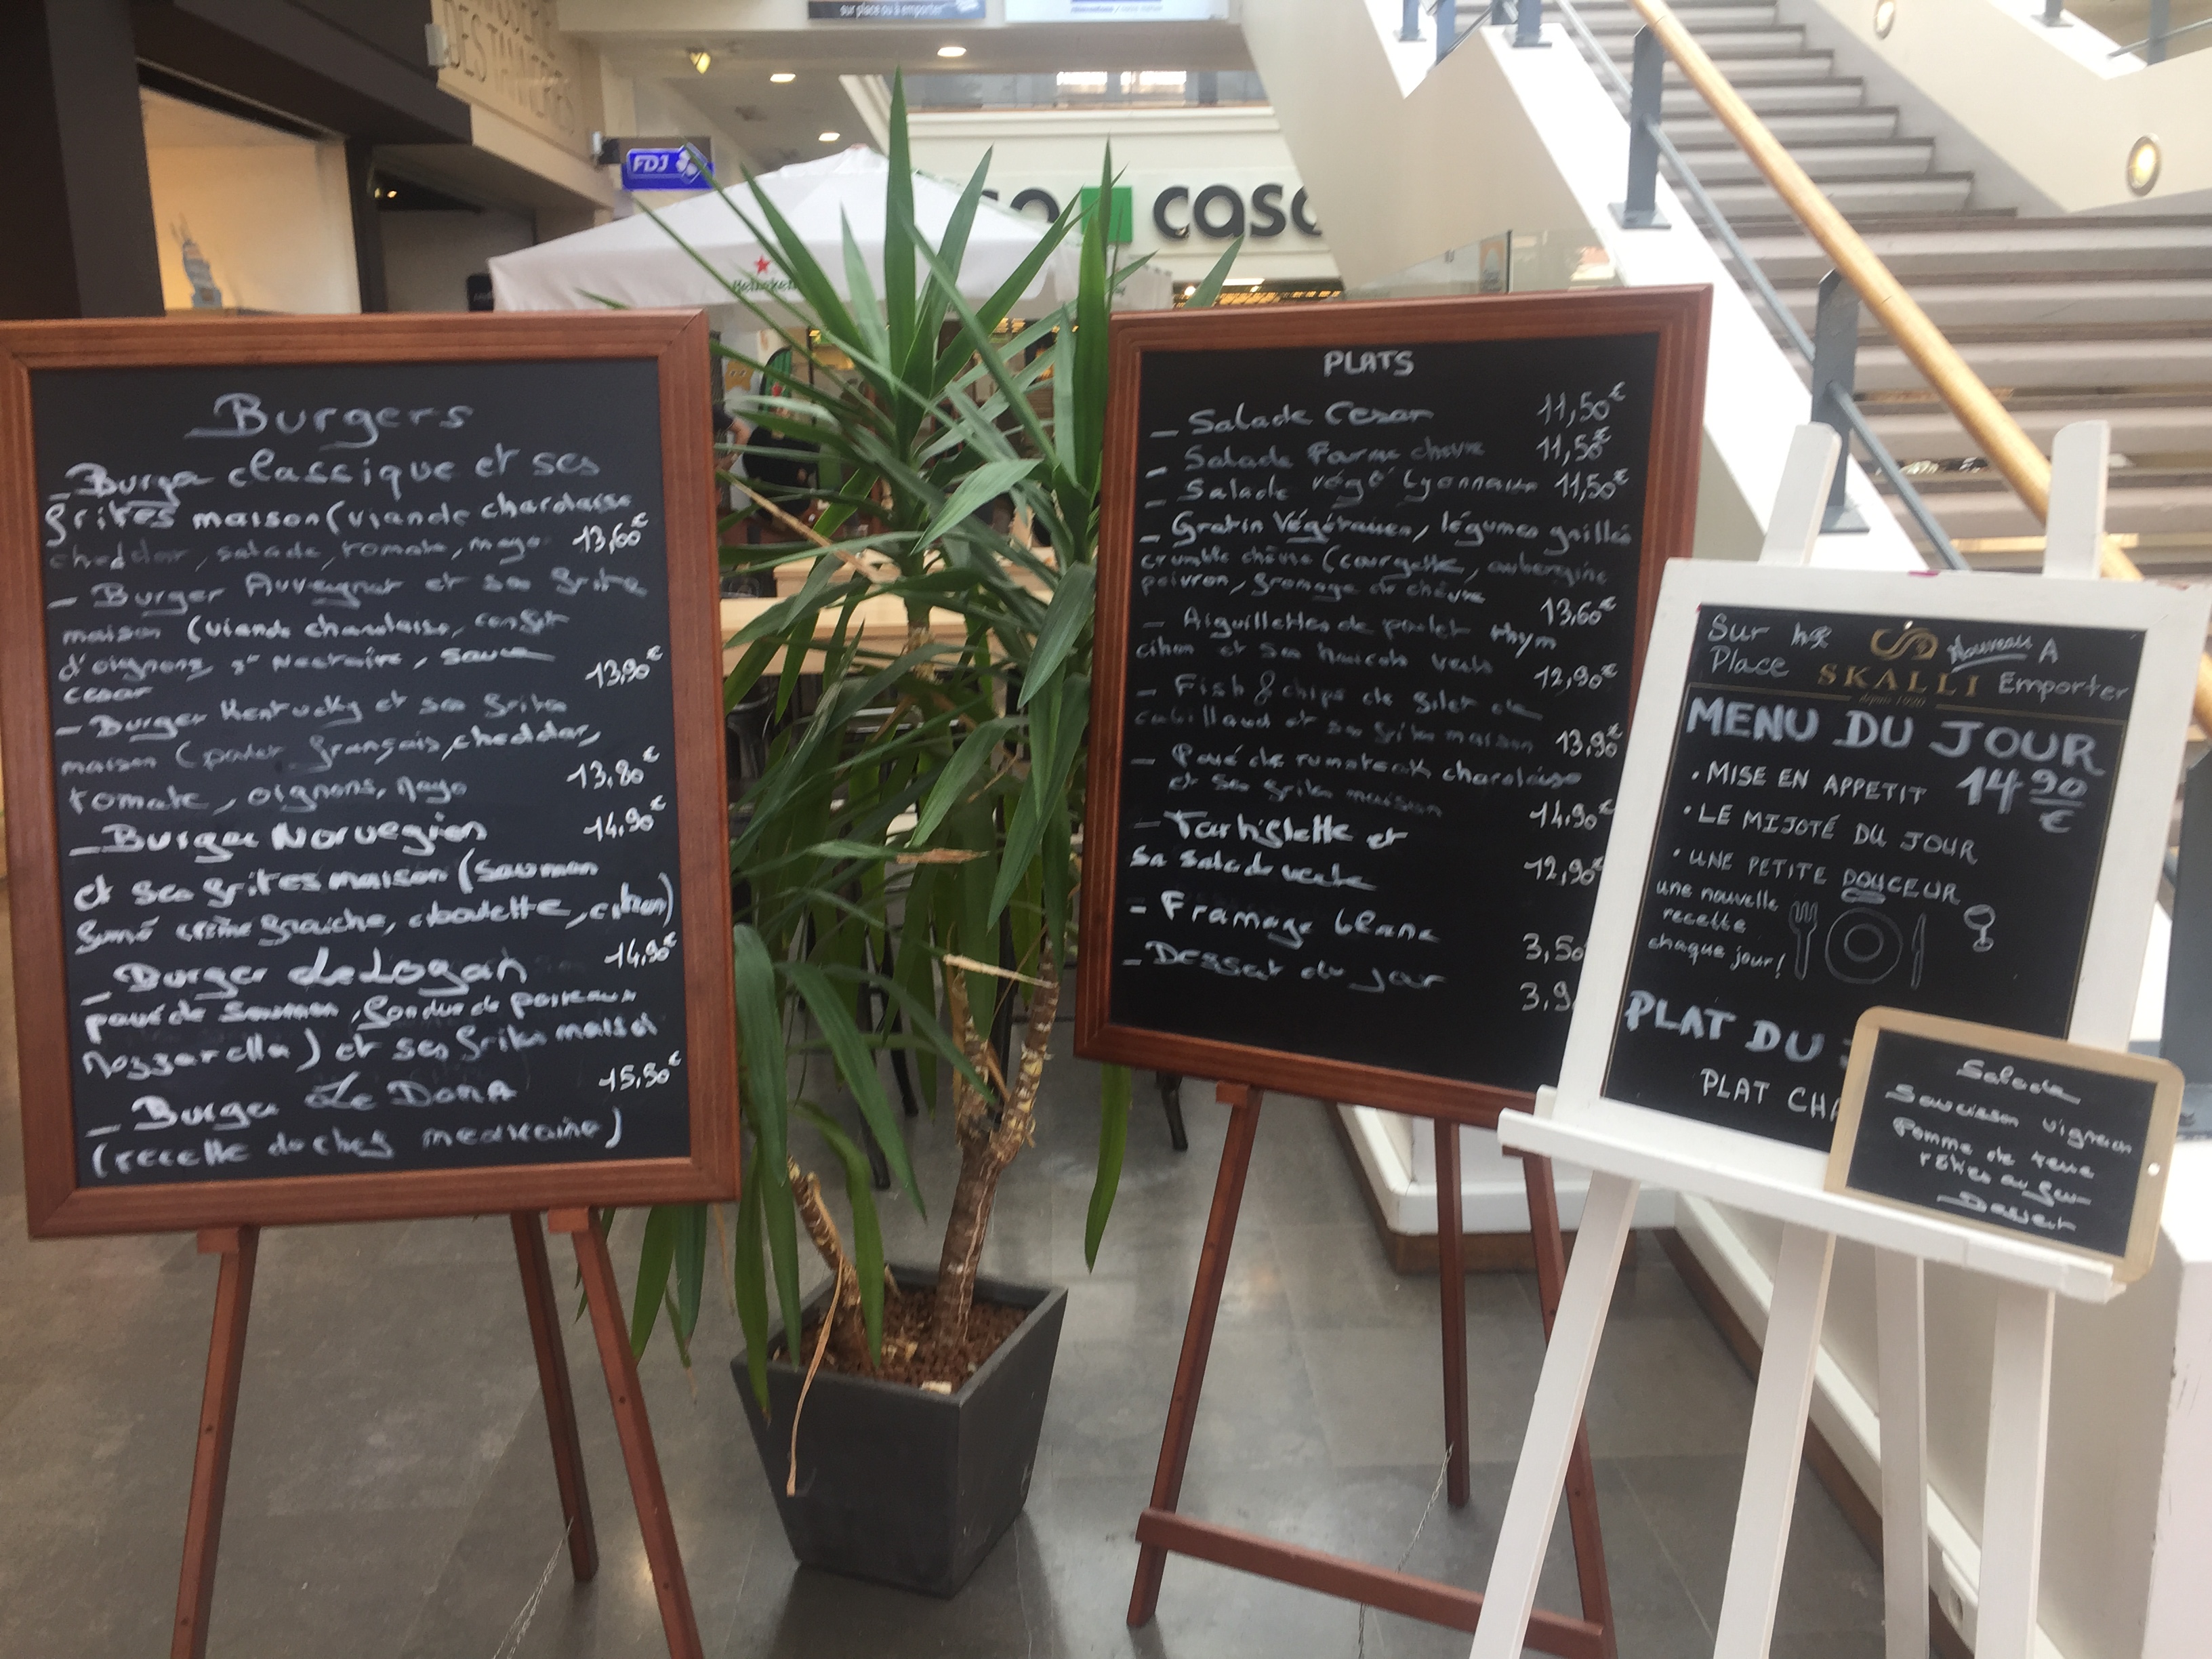 sur place ou à emporter
DES TANNERS
FDJ
casa
Heineken
Burgers
- Burger classique et ses
frites maison (viande charolaise
cheddar, salade, tomate, mayo 13,60€
- Burger Auvergnat et ses frites
maison (viande charolaise, confit
d'oignons, st Nectaire, sauce
cesar 13,90€
- Burger Kentucky et ses frites
maison (poulet français, cheddar,
tomate, oignons, mayo 13,80€
- Burger Norvegien 14,90€
et ses frites maison (saumon
fumé crème fraiche, ciboulette, citron)
- Burger Le Logan 14,90€
pavé de saumon, fondue de poireaux
mozzarella) et ses frites maison
- Burger Le DONA 15,50€
(recette du chef mexicaine)
PLATS
- Salade Cesar 11,50€
- Salade Ferme chèvre 11,50€
- Salade végé Lyonnaise 11,50€
- Gratin Végétarien, légumes grillés
crumble chèvre (courgette, aubergine
poivron, fromage de chèvre 13,60€
- Aiguillettes de poulet thym
citron et ses haricots verts 12,90€
- Fish & chips de filet de
cabillaud et ses frites maison 13,90€
- Pavé de rumsteak charolaise
et ses frites maison 14,90€
- Tartiflette et
sa salade verte 12,90€
- Fromage blanc 3,50
- Dessert du jour 3,9
Sur Place
SKALLI
depuis 1920
Nouveau A Emporter
MENU DU JOUR
• MISE EN APPETIT 14,90 €
• LE MIJOTÉ DU JOUR
• UNE PETITE DOUCEUR
une nouvelle
recette
chaque jour!
PLAT DU
PLAT CHA
Salade
Saucisson vigneron
Pomme de terre
rôties au four
Dessert